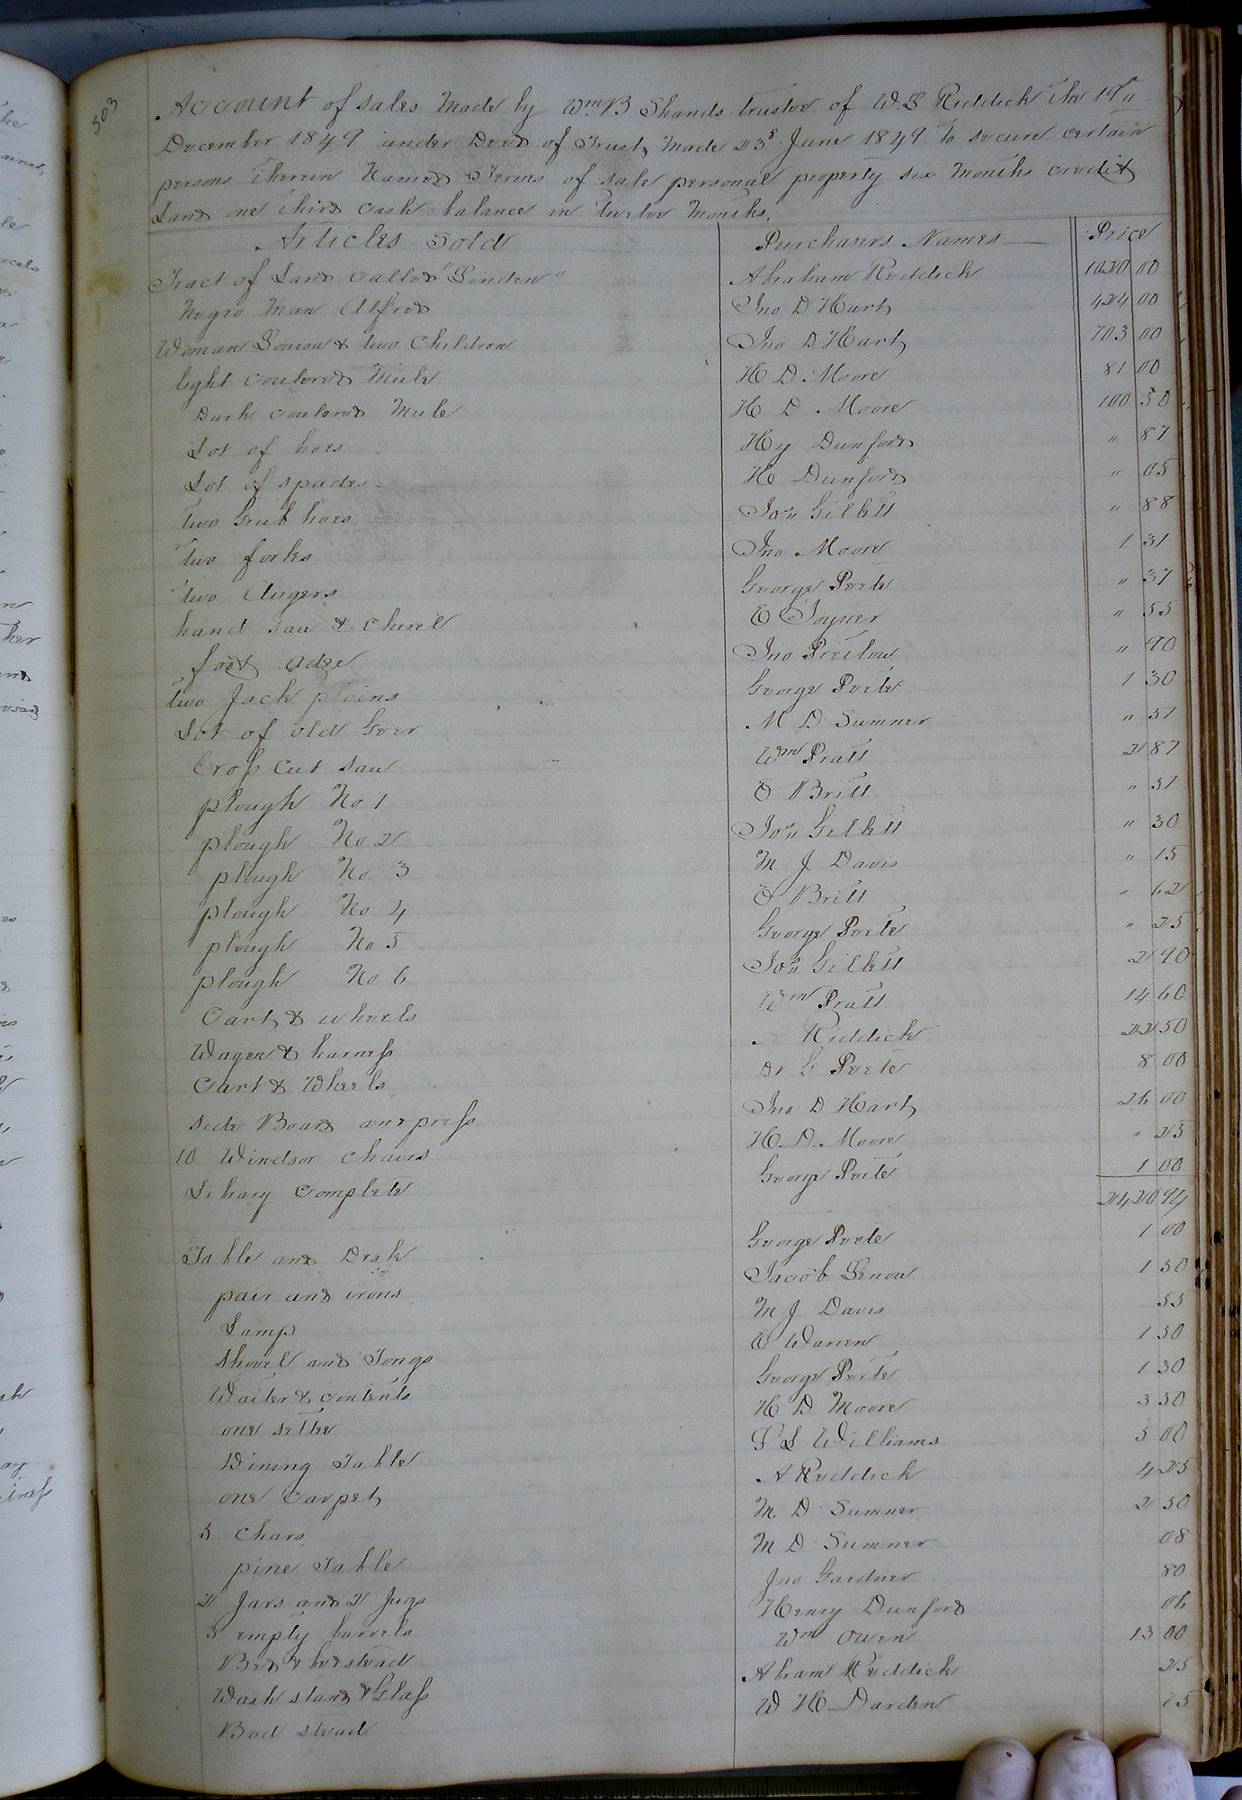 503
Account of sales Made by Wm B Shands trustee of W S Riddick the 19th
December 1849 under Deed of Trust Made 23d June 1849 to secure certain
persons therein Named Terms of sale personal property six Months credit
Land one third cash balance in twelve Months.
Articles Sold Purchasers Names Price
Tract of Land called "Linden" Abraham Riddick 1020 00
Negro Man Alfred Jno D Hart 424 00
Woman Louisa & two Children Jno D Hart 703 00
light couloured Mule H D Moore 81 00
Dark couloured Mule H D Moore 100 50
Lot of hoes Hy Dunford " 87
Lot of spades H Dunford " 05
two Grub hoes Jos" Gilbtt " 88
two forks Jno Moore 1 31
two Augers George Porte " 37
hand saw & chisel E Joyner " 55
foot adze Jno Prielow " 90
two Jack plains George Porte 1 30
Lot of old Geer M D Sumner " 51
Cross Cut saw Wm Pratt 2 87
plough No 1 O Britt " 51
plough No 2 Jos" Gilbtt " 30
plough No 3 M J Davis " 15
plough No 4 O Britt " 62
plough No 5 George Porte " 25
plough No 6 Jos" Gilbtt 2 90
Cart & wheels Wm Pratt 14 60
Wagon & harness A Riddick 22 50
Cart & Wheels Dr G Porte 8 00
side Board and press Jno D Hart 26 00
10 Windsor Chairs H. D. Moore " 25
Libary Complete George Porte 1 00
2420 94
Table and Desk George Porte 1 00
pair and irons Jacob Lenow 1 50
Lamp M J Davis 55
Shovel and Tongs E Warren 1 50
Waiter & contents George Porte 1 30
one settee H D Moore 3 50
Dining Table L S Williams 5 00
one Carpet A Riddick 4 25
5 Chars M D Sumner 2 50
pine Table M D Sumner 08
2 Jars and 2 Jugs Jno Gardner 80
5 empty barrels Henry Dunford 06
Bed & bedstead Wm Owen 13 00
Wash stand & Glass Abram Riddick 25
Bed stead W H Darden 75